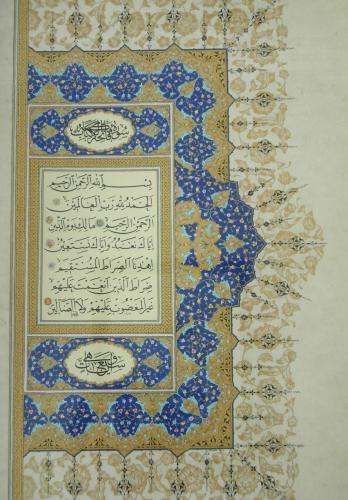 سورة فاتحة الكتاب
بِسْمِ اللهِ الرَّحْمٰنِ الرَّحِيمِ
اَلْحَمْدُ لِلّٰهِ رَبِّ الْعَالَمِينَ
اَلرَّحْمٰنِ الرَّحِيمِ مَالِكِ يَوْمِ الدِّينِ
اِيَّاكَ نَعْبُدُ وَاِيَّاكَ نَسْتَعِينُ
اِهْدِنَا الصِّرَاطَ الْمُسْتَقِيمَ
صِرَاطَ الَّذِينَ اَنْعَمْتَ عَلَيْهِمْ
غَيْرِ الْمَغْضُوبِ عَلَيْهِمْ وَلَا الضَّالِّينَ